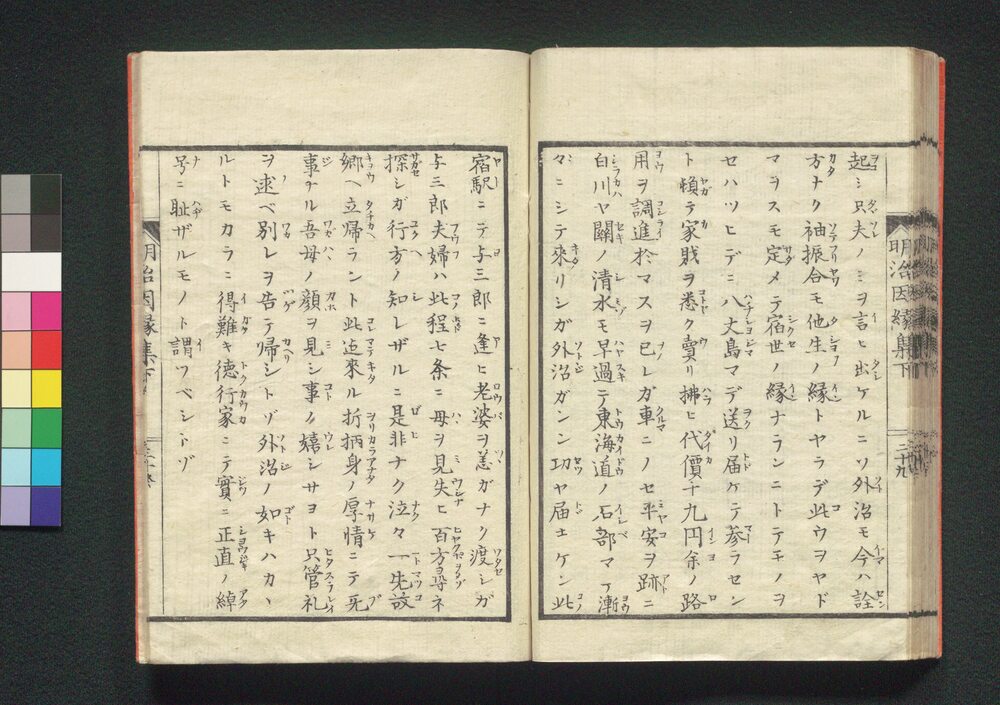 起シ只夫ノミヲ言ヒ出ケルニソ外沼モ今ハ詮
方ナク袖振合モ他生ノ縁トヤラデ此ウヲヤド
マヲスモ定メテ宿世ノ縁ナランニトテモノヲ
セハツヒデニ八丈島マデ送リ届ケテ参ラセン
ト頓テ家賎ヲ悉ク賣リ拂ヒ代價十九円余ノ路
用ヲ調進於マスヲ已レガ車ニノセ平安ヲ跡ニ
白川ヤ關ノ清水モ早過テ東海道ノ石部マデ漸
々ニシテ來リシガ外沼ガンン功ヤ届キケン此
明治因縁集下
二十九
宿駅ニテ与三郎ニ逢ヒ老婆ヲ恙ガナク渡シガ
与三郎夫婦ハ此程七条ニ母ヲ見失ヒ百方尋ネ
探シガ行方ノ知レザルニ是非ナク泣々一先故
郷ヘ立帰ラント此迄來ル折柄身ノ厚情ニテ死
事ナル吾母ノ顔ヲ見シ事ノ嬉シサヨト只管礼
ヲ述ベ別レヲ告テ帰シトゾ外沼ノ如キハカヽ
ルトモカラニ得難キ徳行家ニテ實ニ正直ノ綽
号ニ恥ザルモノト謂ツベシトゾ
明治因縁集下